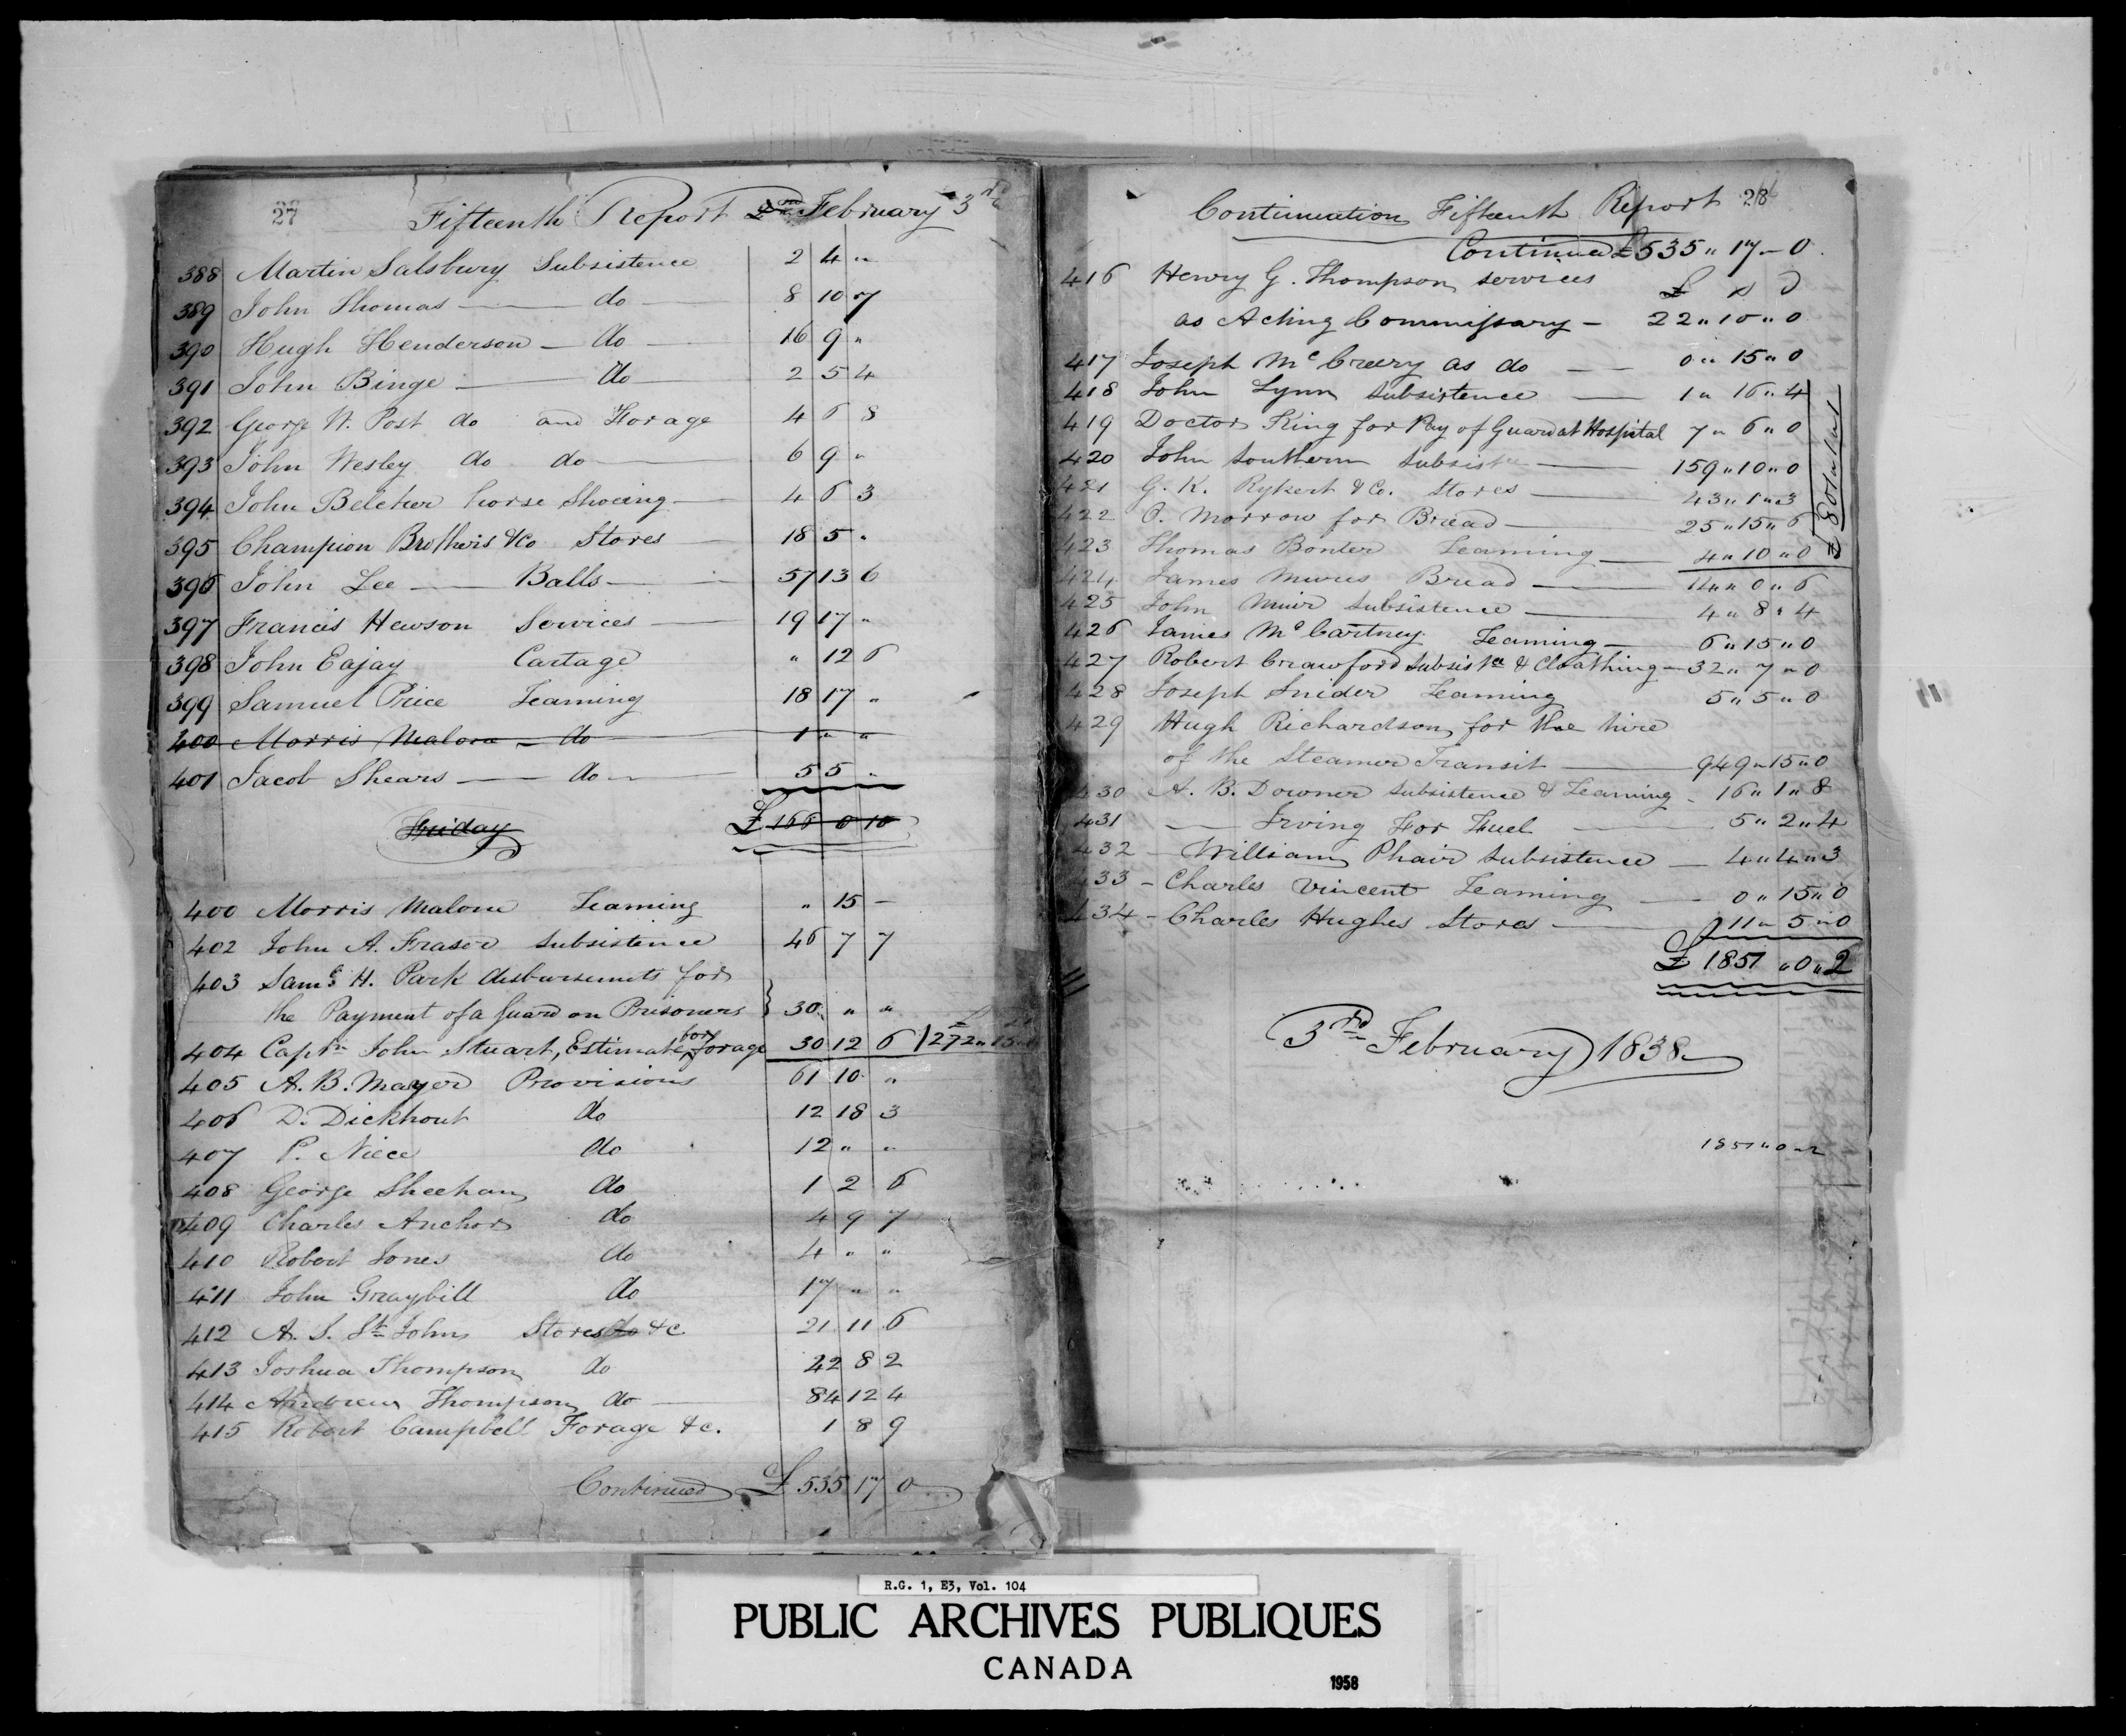 27
Fifteenth Report February 3rd
388 Martin Salsbury Subsistence 2 4 "
389 John Thomas — do — 8 10 7
390 Hugh Henderson — do — 16 9 "
391 John Binge — do 2 5 4
392 George W. Post do and Forage 4 6 8
393 John Wesley do do — 6 9 "
394 John Belcher horse Shoeing — 4 6 3
395 Champion Brothers &Co Stores — 18 5 "
396 John Lee — Balls — 57 13 6
397 Francis Hewson Services — 19 17 "
398 John Eajay Cartage " 12 6
399 Samuel Price Teaming 18 17 "
400 Morris Malone — do 1 " "
401 Jacob Shears — do — 5 5 "
Friday £ 166 0 10
400 Morris Malone Teaming " 15 —
402 John A. Fraser Subsistence 46 7 7
403 Saml H. Park disbursements for
the Payment of a Guard on Prisoners } 30 " "
404 Captn John Stuart, Estimate for Forage 30 12 6
405 A. B. Mayer Provisions 61 10 "
406 D. Dickhout do 12 18 3
407 P. Niece do 12 " "
408 George Sheehan do 1 2 6
409 Charles Anchor do 4 9 7
410 Robert Jones do 4 " "
411 John Graybill do 17 " "
412 A. S. St John Stores do &c 21 11 6
413 Joshua Thompson do 22 8 2
414 Andrew Thompson do — 84 12 4
415 Robert Campbell Forage &c. 1 8 9
Continued £ 535 17 0
Continuation Fifteenth Report 28
Continued £ 535 " 17 — 0
416 Henry G. Thompson services £ s D
as Acting Commissary — 22 " 10 " 0
417 Joseph McCreery as do — 0 " 15 " 0
418 John Lynn subsistence — 1 " 16 " 4
419 Doctor King for Pay of Guard at Hospital 7 " 6 " 0
420 John Southern Subsistce — 159 " 10 " 0
421 G. K. Rykert & Co. Stores — 43 " 1 " 3
422 O. Morrow for Bread — 25 " 15 " 6
423 Thomas Bonter Teaming — 4 " 10 " 0
£ 801 " 1 " 1
424 James Mures Bread — 14 " 0 " 6
425 John Muir Subsistence — 4 " 8 " 4
426 James McCartney Teaming — 6 " 15 " 0
427 Robert Crawford Subsistce & Cloathing — 32 " 7 " 0
428 Joseph Snider Teaming 5 " 5 " 0
429 Hugh Richardson for the hire
of the Steamer Transit — 949 " 15 " 0
430 A. B. Downer Subsistence & Teaming — 16 " 1 " 8
431 — Irving For Fuel — 5 " 2 " 4
432 — William Phair Subsistence — 4 " 4 " 3
433 — Charles Vincent Teaming — 0 " 15 " 0
434 — Charles Hughes Stores — 11 " 5 " 0
£ 1851 " 0 " 2
3rd February 1838
1851 " 0 " 2
R.G. 1, E3, Vol. 104
PUBLIC ARCHIVES PUBLIQUES
CANADA
1958